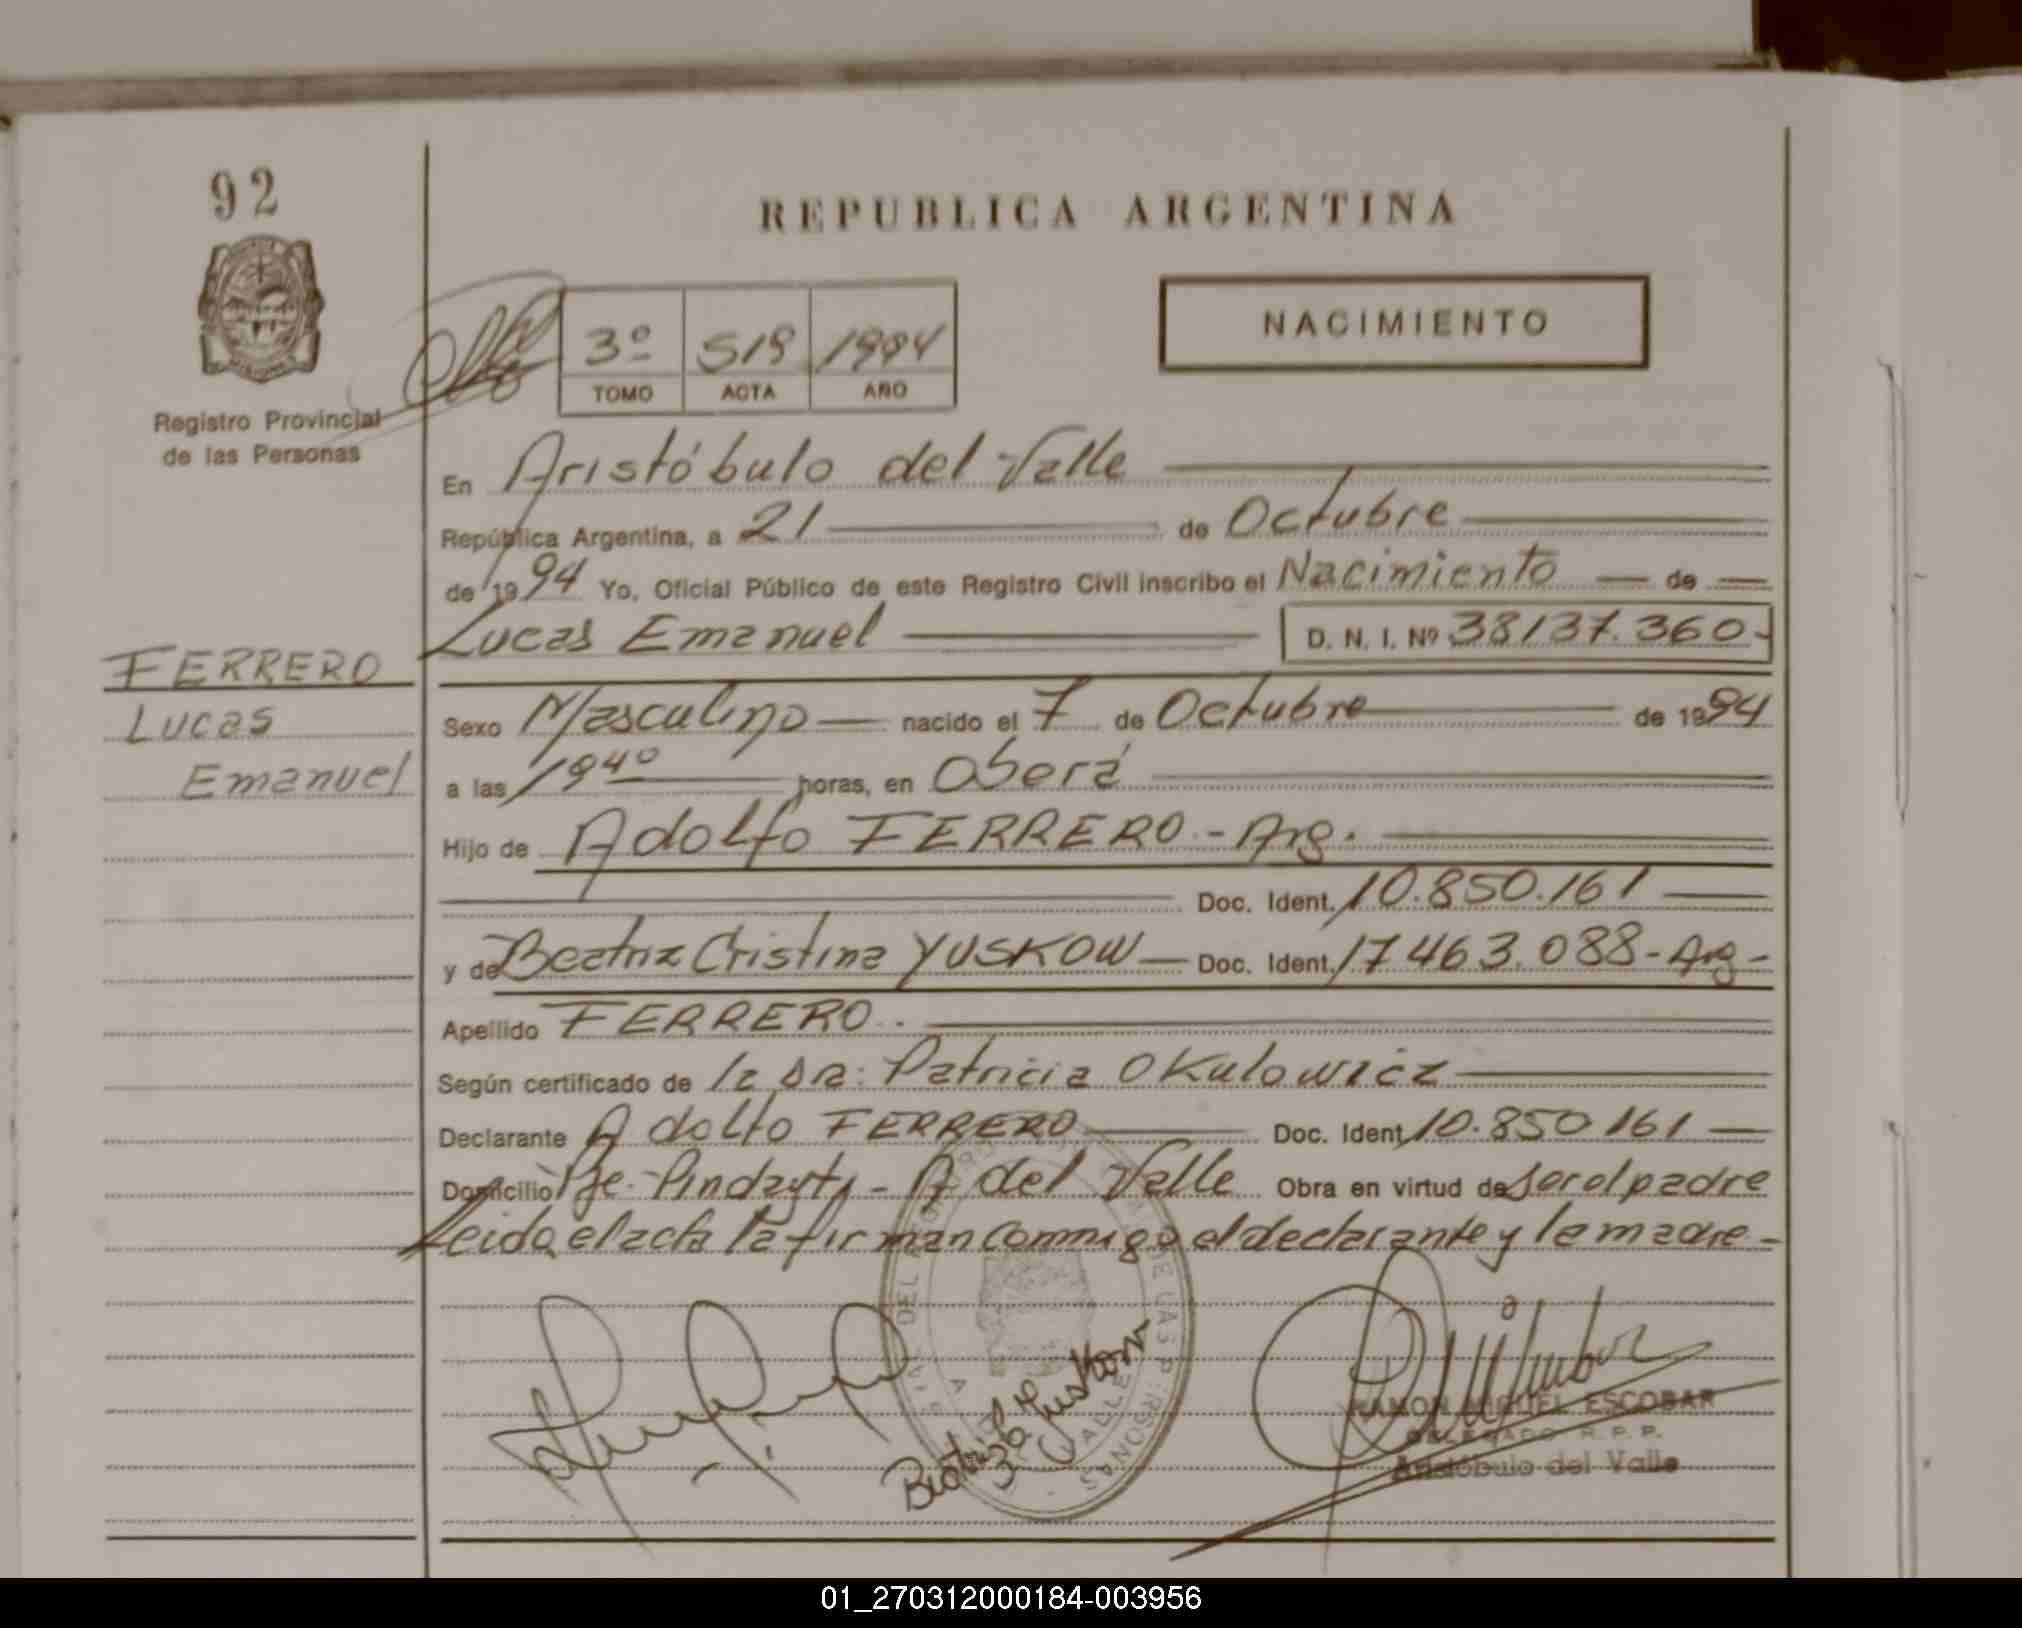 92
REPUBLICA ARGENTINA
NACIMIENTO
3º 519 1994
TOMO ACTA AÑO
Registro Provincial
de las Personas
En Aristóbulo del Valle
República Argentina, a 21 de Octubre
de 1994 Yo, Oficial Público de este Registro Civil inscribo el Nacimiento de
Lucas Emanuel D. N. I. Nº 38137.360-
FERRERO
Lucas
Emanuel
Sexo Masculino nacido el 7 de Octubre de 1994
a las 19 40 horas, en Oberá
Hijo de Adolfo FERRERO - Arg.
Doc. Ident. 10.850.161
y de Beatriz Cristina YUSKOW Doc. Ident. 17463.088 - Arg -
Apellido FERRERO.
Según certificado de la Dra: Patricia Okulowicz
Declarante Adolfo FERRERO Doc. Ident. 10.850161
Domicilio Pje. - A del Valle Obra en virtud de ser el padre
Leida el acta la firman conmigo el declarante y la madre -
DEL REGISTRO DE LAS PERSONAS
VALLE
RAMON MIGUEL ESCOBAR
DELEGADO R. P. P.
Aristóbulo del Valle
01_270312000184-003956